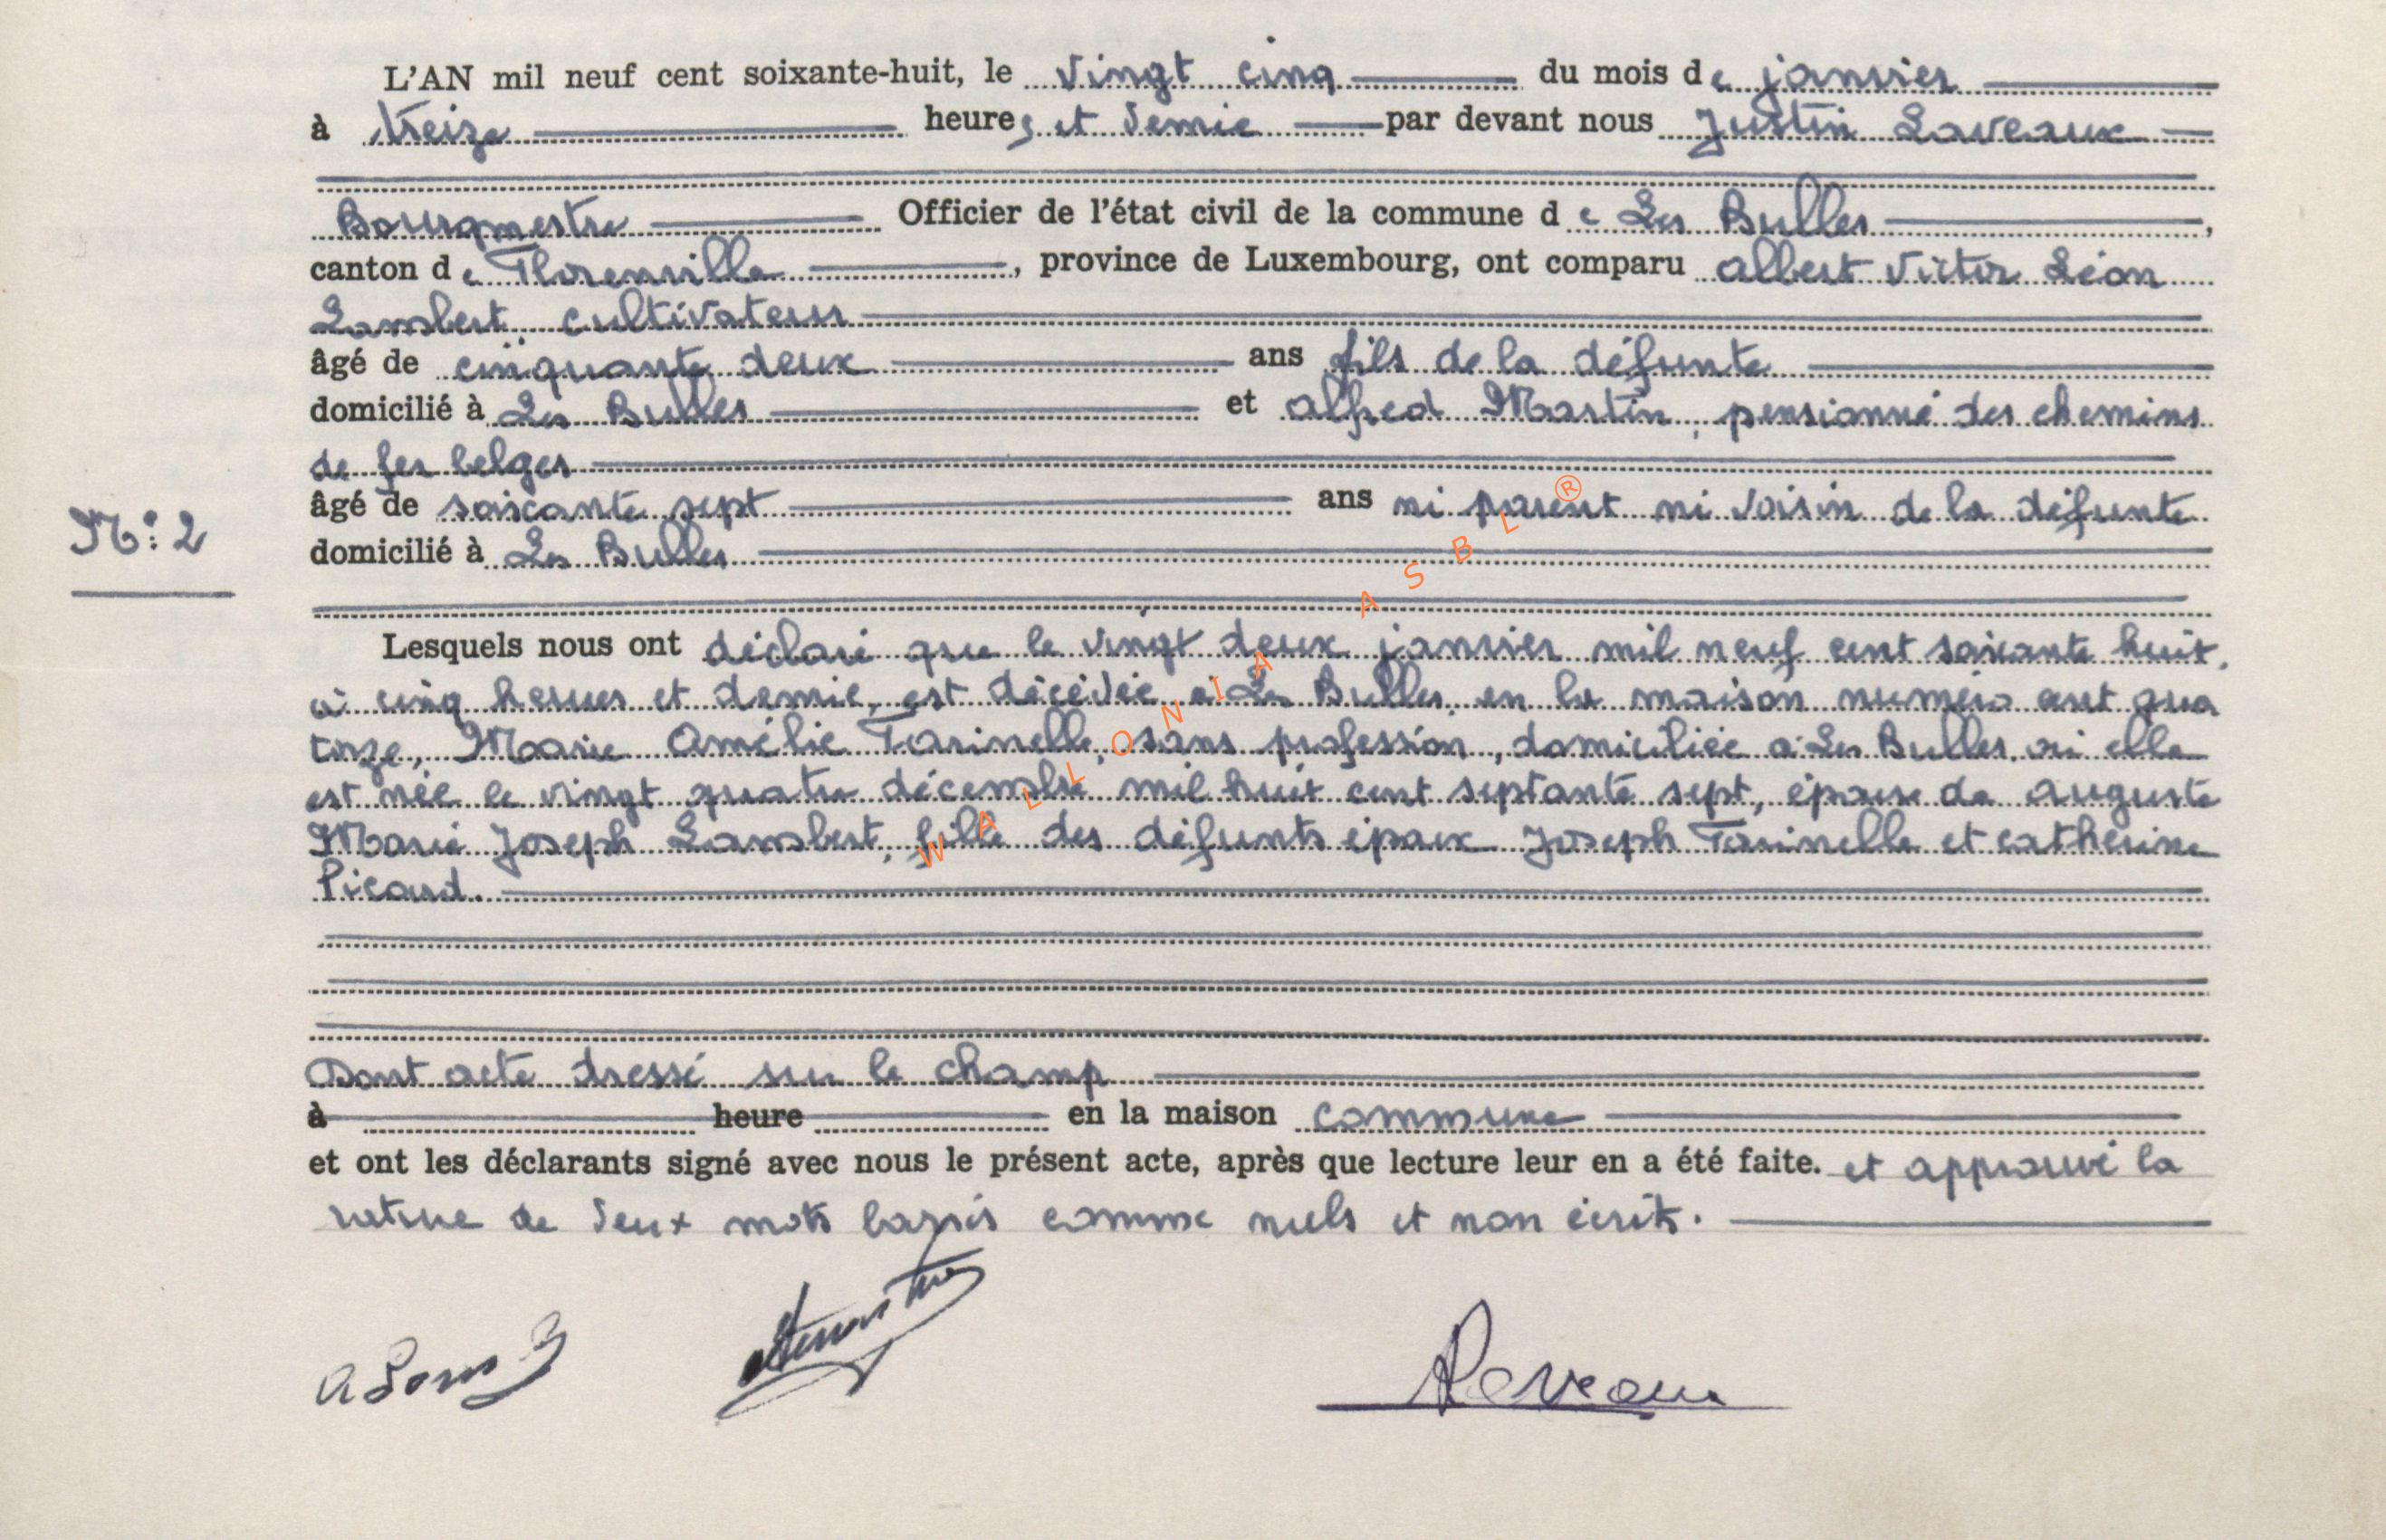 L'AN mil neuf cent soixante-huit, le vingt cinq du mois de janvier
à treize heures et demie par devant nous Justin Laveaux
Bourgmestre Officier de l'état civil de la commune de Les Bulles,
canton de Florenville, province de Luxembourg, ont comparu Albert Victor Léon
Lambert, cultivateur
âgé de cinquante deux ans fils de la défunte
domicilié à Les Bulles et Alfred Martin, pensionné des chemins
de fer belges
âgé de soixante sept ans ni parent ni voisin de la défunte
N° 2
domicilié à Les Bulles
Lesquels nous ont déclaré que le vingt deux janvier mil neuf cent soixante huit,
à cinq heures et demie, est décédée à Les Bulles, en la maison numéro cent qua
torze, Marie Amélie Tarinelle, sans profession, domiciliée à Les Bulles, où elle
est née le vingt quatre décembre mil huit cent septante sept, épouse de Auguste
Marie Joseph Lambert, fille des défunts époux Joseph Tarinelle et Catherine
Picard.
Dont acte dressé sur le champ
à heure en la maison commune
et ont les déclarants signé avec nous le présent acte, après que lecture leur en a été faite. et approuvé la
rature de deux mots barrés comme nuls et non écrits.
Laveaux
WALLONIA ASBL ®